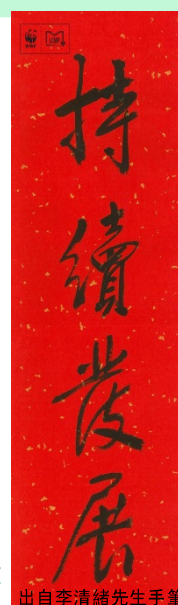 持續發展
出自李清緒先生手筆